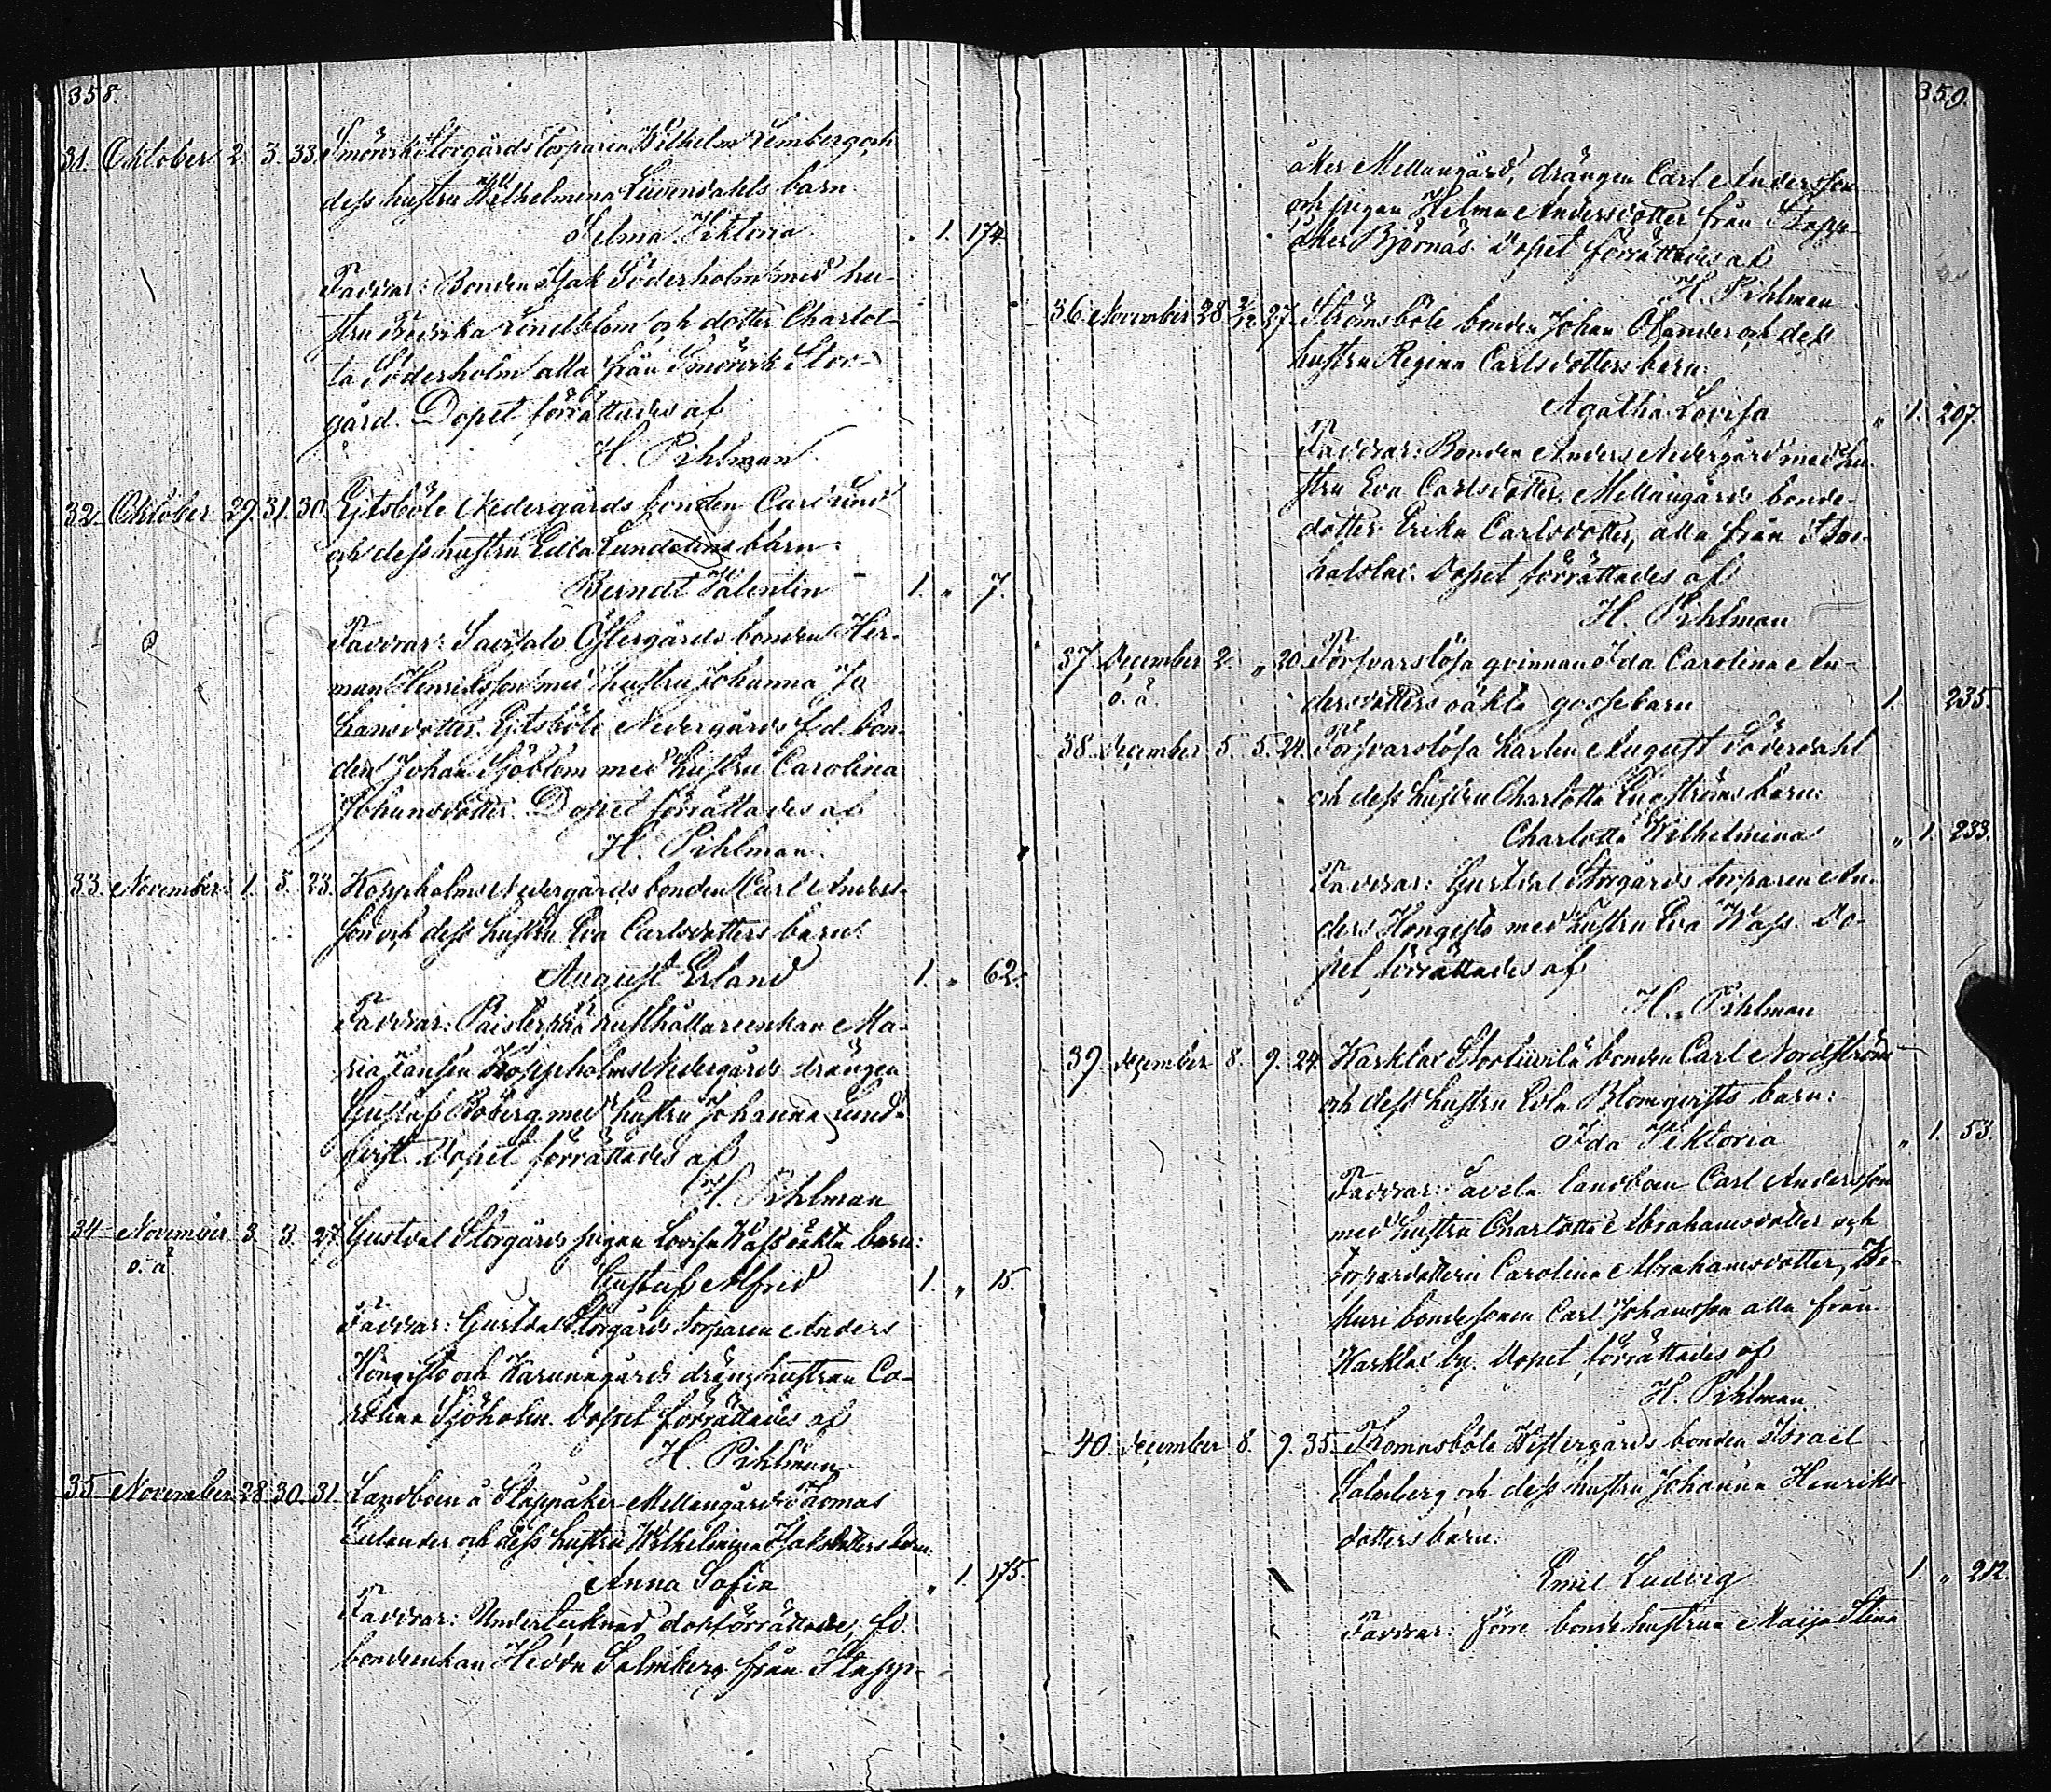 358.
31. Oktober 2. 3. 33. Smörvik Storgårds torparen Wilhelm Lemberg och
dess hustru Wilhelmina Liwendahls barn
Selma Viktoria „ 1. 174
Faddrar: Bonden Isak Söderholm med hu-
stru Fredrika Lindblom och dotter Charlot-
ta Söderholm alla från Smörvik Stor-
gård. Dopet förrättades af
H. Pihlman
32. Oktober 29. 31. 30. Gitsböle Nedergårds bonden Carl Lund
och dess hustru Edla Lundelins barn:
Berndt Valentin 1. „ 7.
Faddrar: Östergårds bonden Her-
man Henriksson med hustru Johanna Jo-
hansdotter. Gitsböle Nedergårds f.d. bon-
den Johan Sjöblom med hustru Carolina
Johansdotter. Dopet förrättades af
H. Pihlman.
33. November 1. 3. 23. Koppholms Nedergårds bonden Carl Anders-
son och dess hustru Eva Carlsdotters barn:
August Erland 1. „ 62.
Faddrar: rusthållareenkan Ma-
ria Jansén Koppholms Nedergårds drängen
Gustaf Boberg med hustru Johanna Lind-
qvist. Dopet förrättades af
H. Pihlman
34. November 3. 3. 27. Gustdal Storgårds pigan Lovisa Wass oäkta barn:
o. ä.
Gustaf Alfrid 1. „ 15.
Faddrar: Gustdal Storgårds torparen Anders
Hongisto och Karunagårds dränghustrun Ca-
rolina Sjöholm. Dopet förrättades af
H. Pihlman
35. November 28. 30. 31. Landboen å Slappåker Mellangårds Thomas
Eulander och dess hustru Wilhelmina Isaksdotters barn:
Anna Sofia „ 1. 175.
Faddrar: Undertecknad dopförrättade, fd.
bondeenkan Hedda Salmberg från Slapp-
359.
åker Mellangård, drängen Carl Andersson
och pigan Hilma Andersdotter från Slapp-
åker Björnäs. Dopet förrättades af
H. Pihlman
36. November 28. 2/12 27. Strömsböle bonden Johan Olander och dess
hustru Regina Carlsdotters barn:
Agatha Lovisa „ 1. 207.
Faddrar: Bonden Anders Nedergård med hu-
stru Eva Carlsdotter. Mellangårds bonde-
dotter Erika Carlsdotter, alla från
Dopet förrättades af
H. Pihlman
37. December 2. „ 20. Försvarslösa qvinnan Ida Carolina An-
o. ä.
dersdotters oäkta gossebarn 1. 235.
38. December 5. 5. 24. Försvarslösa karlen August Söderdahl
och dess hustru Charlotta Engströms barn:
Charlotta Wilhelmina „ 1. 233.
Faddrar: Gustdal Storgårds torparen An-
ders Hongisto med hustru Eva Wass. Do-
pet förrättades af
H. Pihlman
39. December 8. 9. 24. Karklax bonden Carl Nordström
och dess hustru Edla Blomqvists barn:
Ida Viktoria „ 1. 53.
Faddrar: landboen Carl Andersson
med hustru Charlotta Abrahamsdotter och
torpardottern Carolina Abrahamsdotter,
bondesonen Carl Johansson alla från
Karklax by. Dopet förrättades af
H. Pihlman.
40. December 8. 9. 35. Thomasböle Westergårds bonden Israël
Salmberg och dess hustru Johanna Henriks-
dotters barn:
Emil Ludvig 1. „ 212.
Faddrar: förre bondehustrun Maija Stina